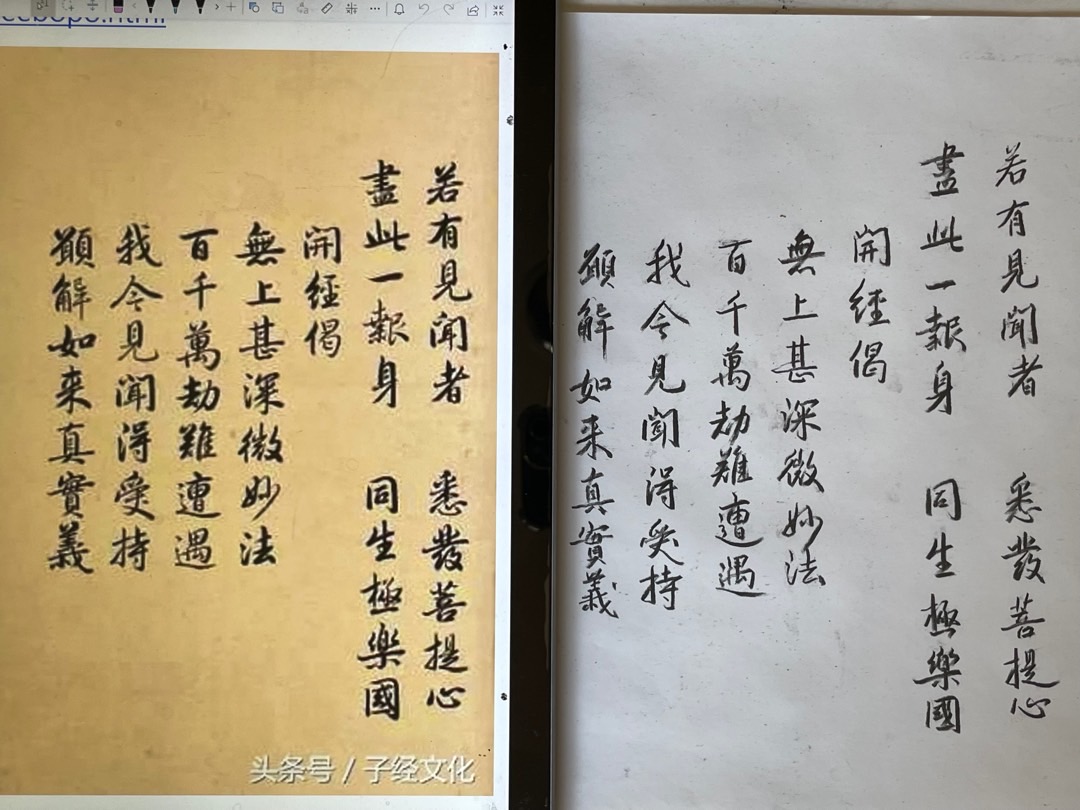 eebopo.html
若有見聞者 悉發菩提心
盡此一報身 同生極樂國
開經偈
無上甚深微妙法
百千萬劫難遭遇
我今見聞得受持
願解如来真實義
头条号 / 子经文化
若有見聞者 悉發菩提心
盡此一報身 同生極樂國
開經偈
無上甚深微妙法
百千萬劫難遭遇
我今見聞得受持
願解如来真實義